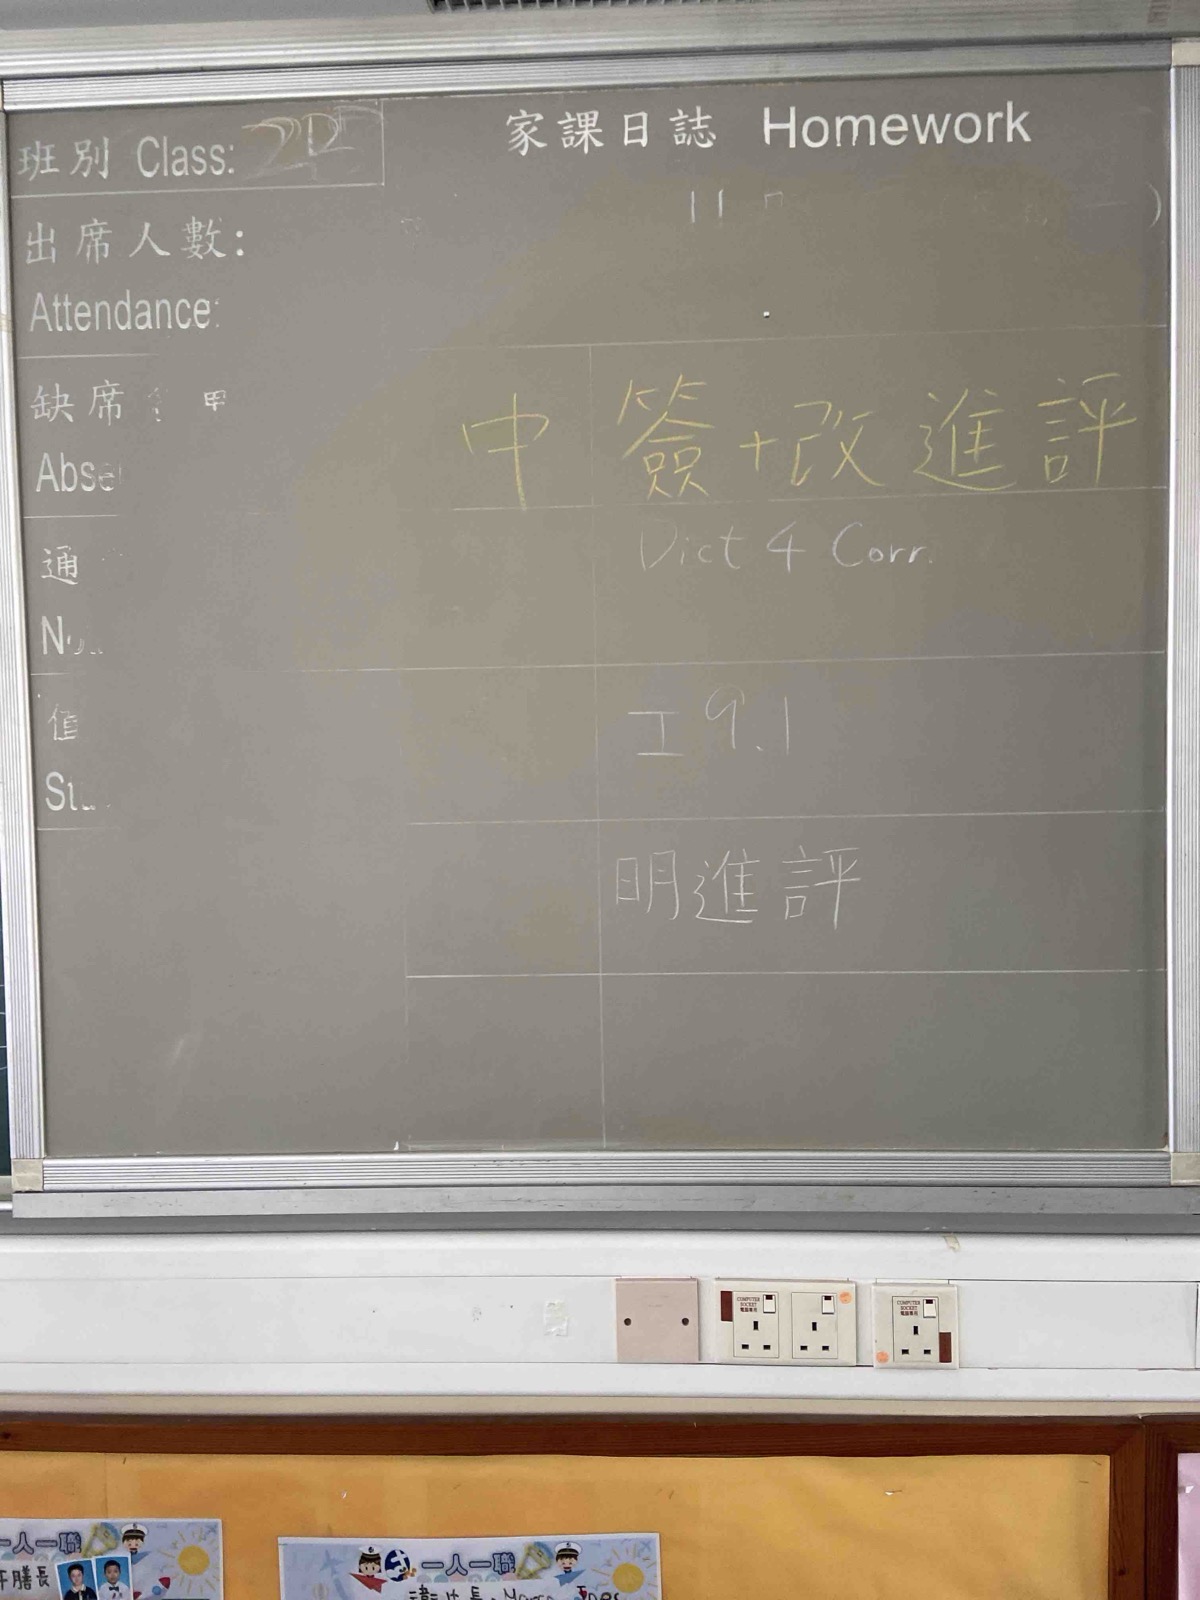 班別 Class:
家課日誌 Homework
出席人數:
11
Attendance:
缺席
中 簽+改進評
Dict 4 Corr.
通
工 9.1
明進評
COMPUTER SOCKET 電腦專用
COMPUTER SOCKET 電腦專用
一人一職
一人一職
膳長